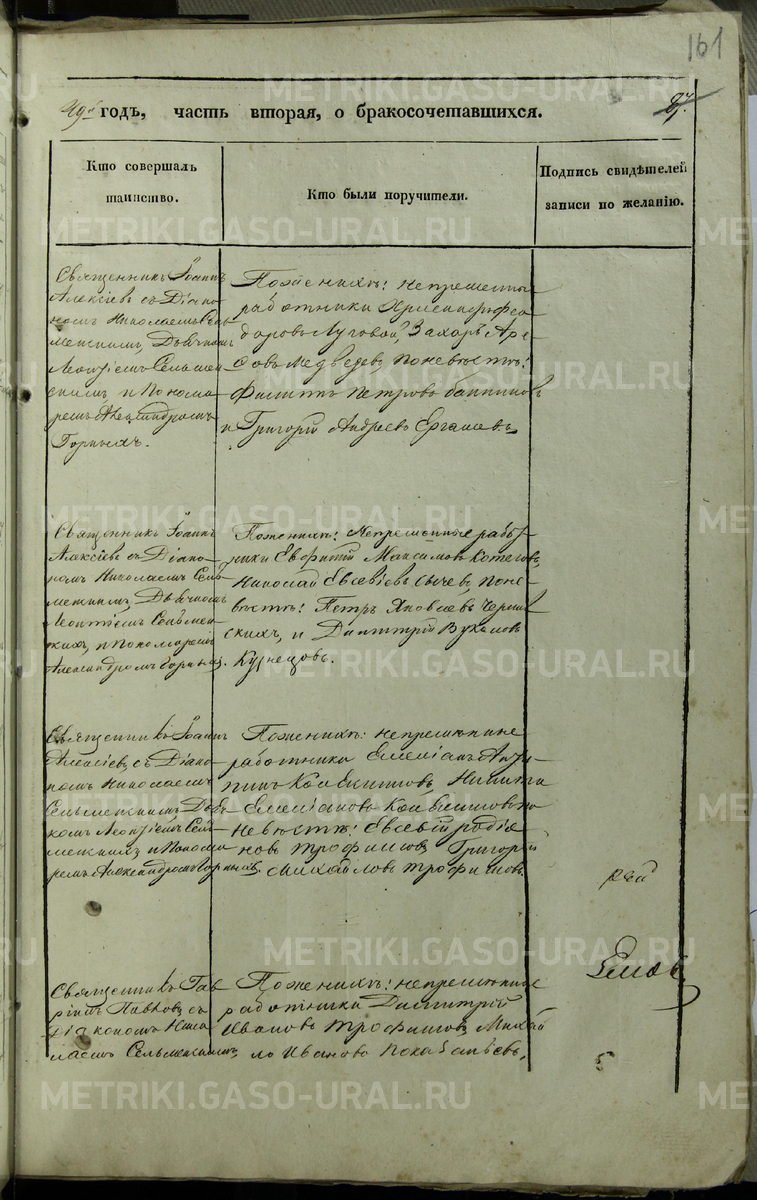 161
49й годъ, часть вторая, о бракосочетавшихся.
87.
Кто совершалъ
таинство.
Кто были поручители.
Подпись свидѣтелей
записи по желанію.
Священникъ Іоаннъ
Алексіевъ съ Діако-
номъ Николаемъ Сель-
менскимъ, Дьячкомъ
Леонтіемъ Сельмен-
скимъ и Понома-
ремъ Александромъ
Горныхъ.
По женихѣ: непремѣнные
работники
Луговой, Захаръ
Медведевъ, по невѣстѣ:
Филиппъ Петровъ
и Григорій Андреевъ Ергашевъ
Священникъ Іоаннъ
Алексіевъ съ Діако-
номъ Николаемъ Сель-
менскимъ, Дьячкомъ
Леонтіемъ Сельмен-
скихъ, и Пономаремъ
Александромъ Горныхъ
По женихѣ: Непремѣнные рабо-
тники Евфимій Максимовъ Котеговъ,
Николай Евсевіевъ Сычевъ, по не-
вѣстѣ: Петръ Яковлевъ
скихъ, и Димитрій Вукаловъ
Кузнецовъ.
Священникъ Іоаннъ
Алексіевъ, съ Діако-
номъ Николаемъ
Сельменскимъ Дья-
комъ Леонтіемъ Сель-
менскимъ и Понома-
ремъ Александромъ Горныхъ
По женихѣ: непремѣнные
работники Емеліанъ Анти-
пинъ Никита
Емеліановъ по
невѣстѣ: Евсевій Родіо-
новъ Трофимовъ, Григорій
Михайловъ Трофимовъ
Священникъ Гав-
ріилъ Павловъ, съ
Діакономъ Нико-
лаемъ Сельменскимъ,
По женихѣ: непремѣнные
работники Димитрій
Ивановъ Трофимовъ, Михай
ло Ивановъ
METRIKI.GASO-URAL.RU